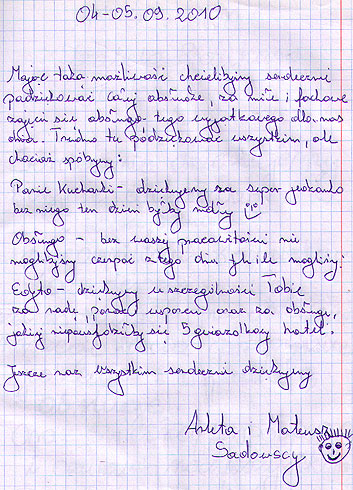 04-05.09.2010
Mając taką możliwość chcielibyśmy serdecznie
podziękować całej obsłudze, za miłe i fachowe
zajęcie się obsługą tego wyjątkowego dla nas
dnia. Trudno tu podziękować wszystkim, ale
chociaż spóbujmy:
Panie Kucharki - dziękujemy za super jedzonko
bez niego ten dzień byłby nudny
Obsługo - bez waszej pracowitości nie
moglibyśmy czerpać z tego dnia tyle ile mogliśmy!
Edyto - dziękujemy w szczególności Tobie
za radę, pomoc, wsparcie oraz za obsługę,
jakiej niepowstydziłby się 5 gwiazdkowy hotel.
Jeszcze raz wszystkim serdecznie dziękujemy
Arleta i Mateusz
Sadowscy